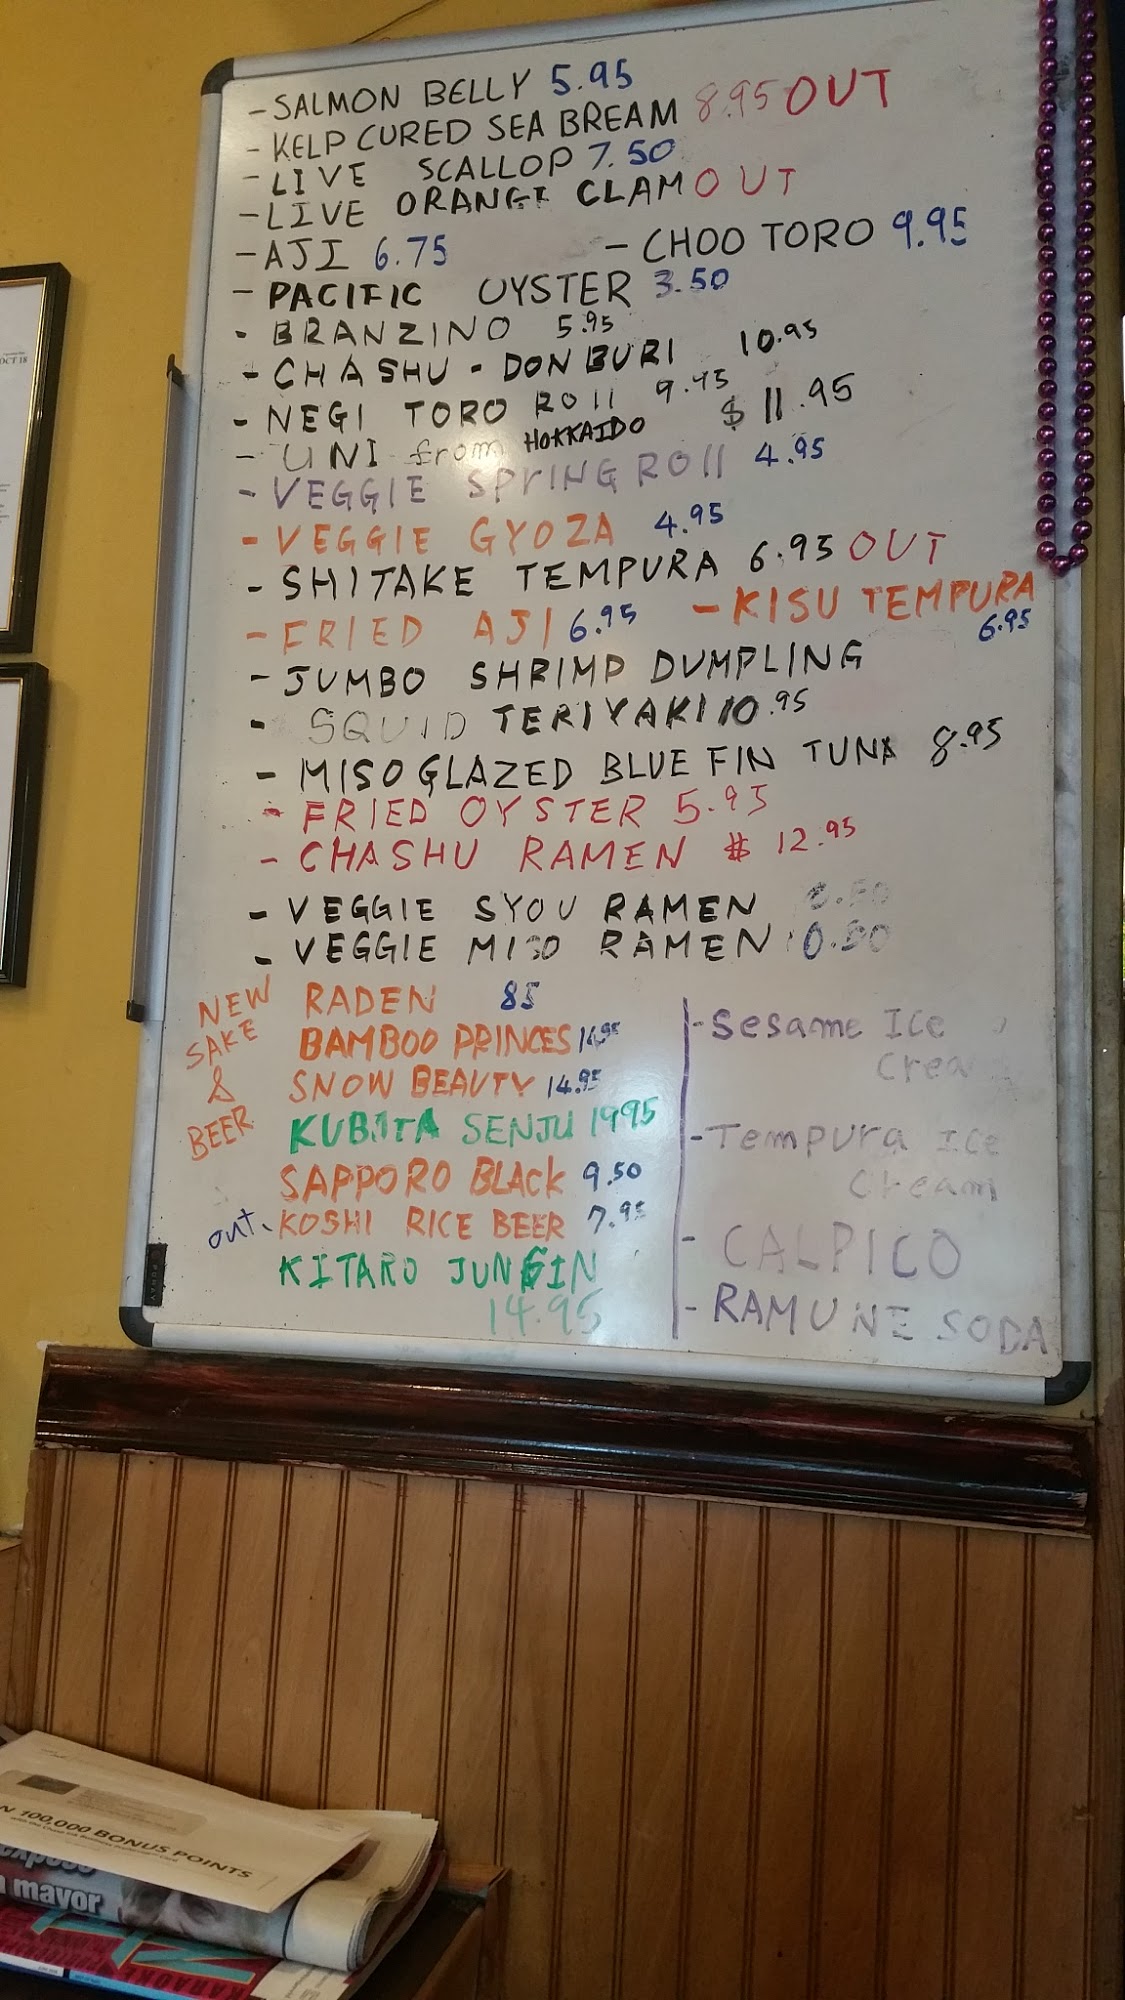 - SALMON BELLY 5.95
- KELP CURED SEA BREAM 8.95 OUT
- LIVE SCALLOP 7.50
- LIVE ORANGE CLAM OUT
- AJI 6.75 - CHOO TORO 9.95
- PACIFIC OYSTER 3.50
- BRANZINO 5.95
- CHASHU - DONBURI 10.95
- NEGI TORO ROll 9.95
- UNI from HOKKAIDO $ 11.95
- VEGGIE SPrING ROll 4.95
- VEGGIE GYOZA 4.95
- SHITAKE TEMPURA 6.95 OUT
- FRIED AJI 6.95 - KISU TEMPURA
6.95
- JUMBO SHRIMP DUMPLING
- SQUID TERIYAKI 10.95
- MISO GLAZED BLUE FIN TUNA 8.95
- FRIED OYSTER 5.95
- CHASHU RAMEN $ 12.95
- VEGGIE SYOU RAMEN
- VEGGIE MISO RAMEN
NEW
SAKE
&
BEER
RADEN 85
BAMBOO PRINCES
SNOW BEAUTY 14.95
KUBOTA SENJU 19.95
SAPPORO BLACK 9.50
out. KOSHI RICE BEER 7.95
KITARO JUNGIN
14.95
- Sesame Ice
Crea
- Tempura Ice
Cream
- CALPICO
- RAMUNE SODA
OCT 18
N 100,000 BONUS POINTS
expose
mayor